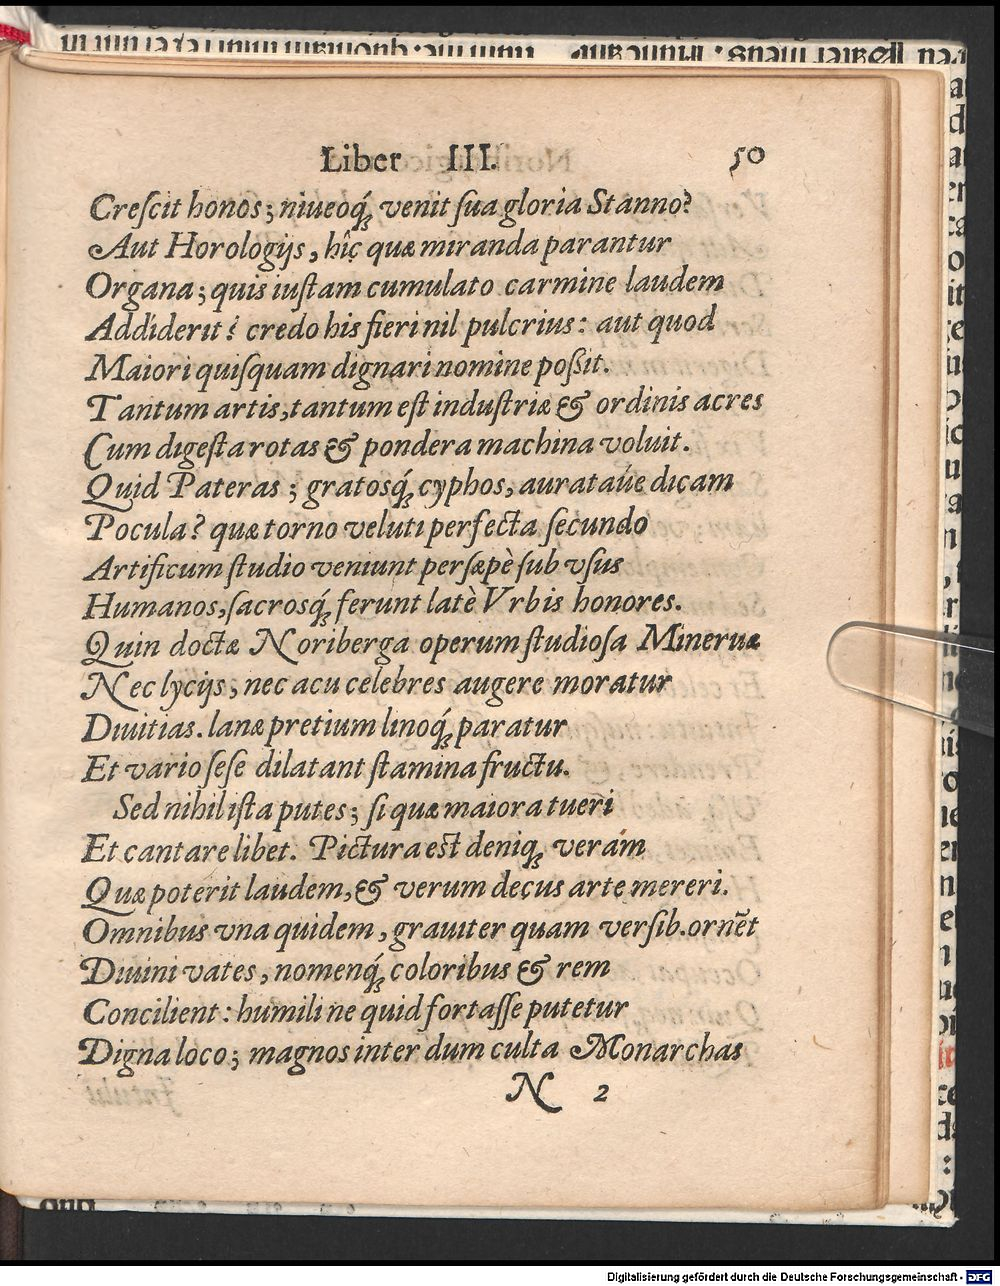 Liber III. 50
Creſcit honos; niueoq́ꝫ venit ſua gloria Stanno?
Aut Horologijs, hîc quæ miranda parantur
Organa; quis iuſtam cumulato carmine laudem
Addiderit? credo his fieri nil pulcrius: aut quod
Maiori quiſquam dignari nomine poßit.
Tantum artis, tantum eſt induſtriæ & ordinis acres
Cum digeſta rotas & pondera machina voluit.
Quid Pateras; gratosq́ꝫ cyphos, aurataúe dicam
Pocula? quæ torno veluti perfecta ſecundo
Artificum ſtudio veniunt perſæpè ſub vſus
Humanos, ſacrosq́ꝫ ferunt latè Vrbis honores.
Quin doctæ Noriberga operum ſtudioſa Mineruæ
Nec lycijs, nec acu celebres augere moratur
Diuitias. lanæ pretium linoq́ꝫ paratur
Et vario ſeſe dilatant ſtamina fructu.
Sed nihil iſta putes; ſi quæ maiora tueri
Et cantare libet. Pictura eſt deniqꝫ veram
Quæ poterit laudem, & verum decus arte mereri.
Omnibus vna quidem, grauiter quam verſib. ornẽt
Diuini vates, nomenq́ꝫ coloribus & rem
Concilient: humili ne quid fortaſſe putetur
Digna loco; magnos interdum culta Monarchas
N 2
Digitalisierung gefördert durch die Deutsche Forschungsgemeinschaft - DFG